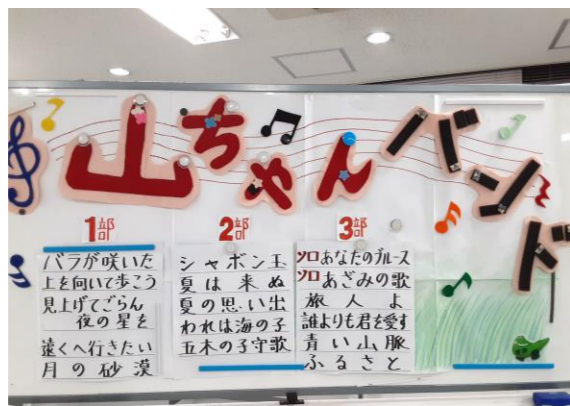 山ちゃんバンド
1部
バラが咲いた
上を向いて歩こう
見上げてごらん
夜の星を
遠くへ行きたい
月の砂漠
2部
シャボン玉
夏は来ぬ
夏の思い出
われは海の子
五木の子守歌
3部
ソロあなたのブルース
ソロあざみの歌
旅人よ
誰よりも君を愛す
青い山脈
ふるさと